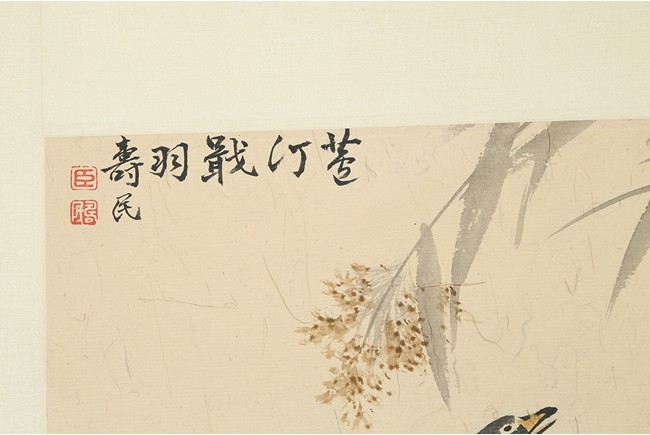 蘆汀戢羽
壽民
臣